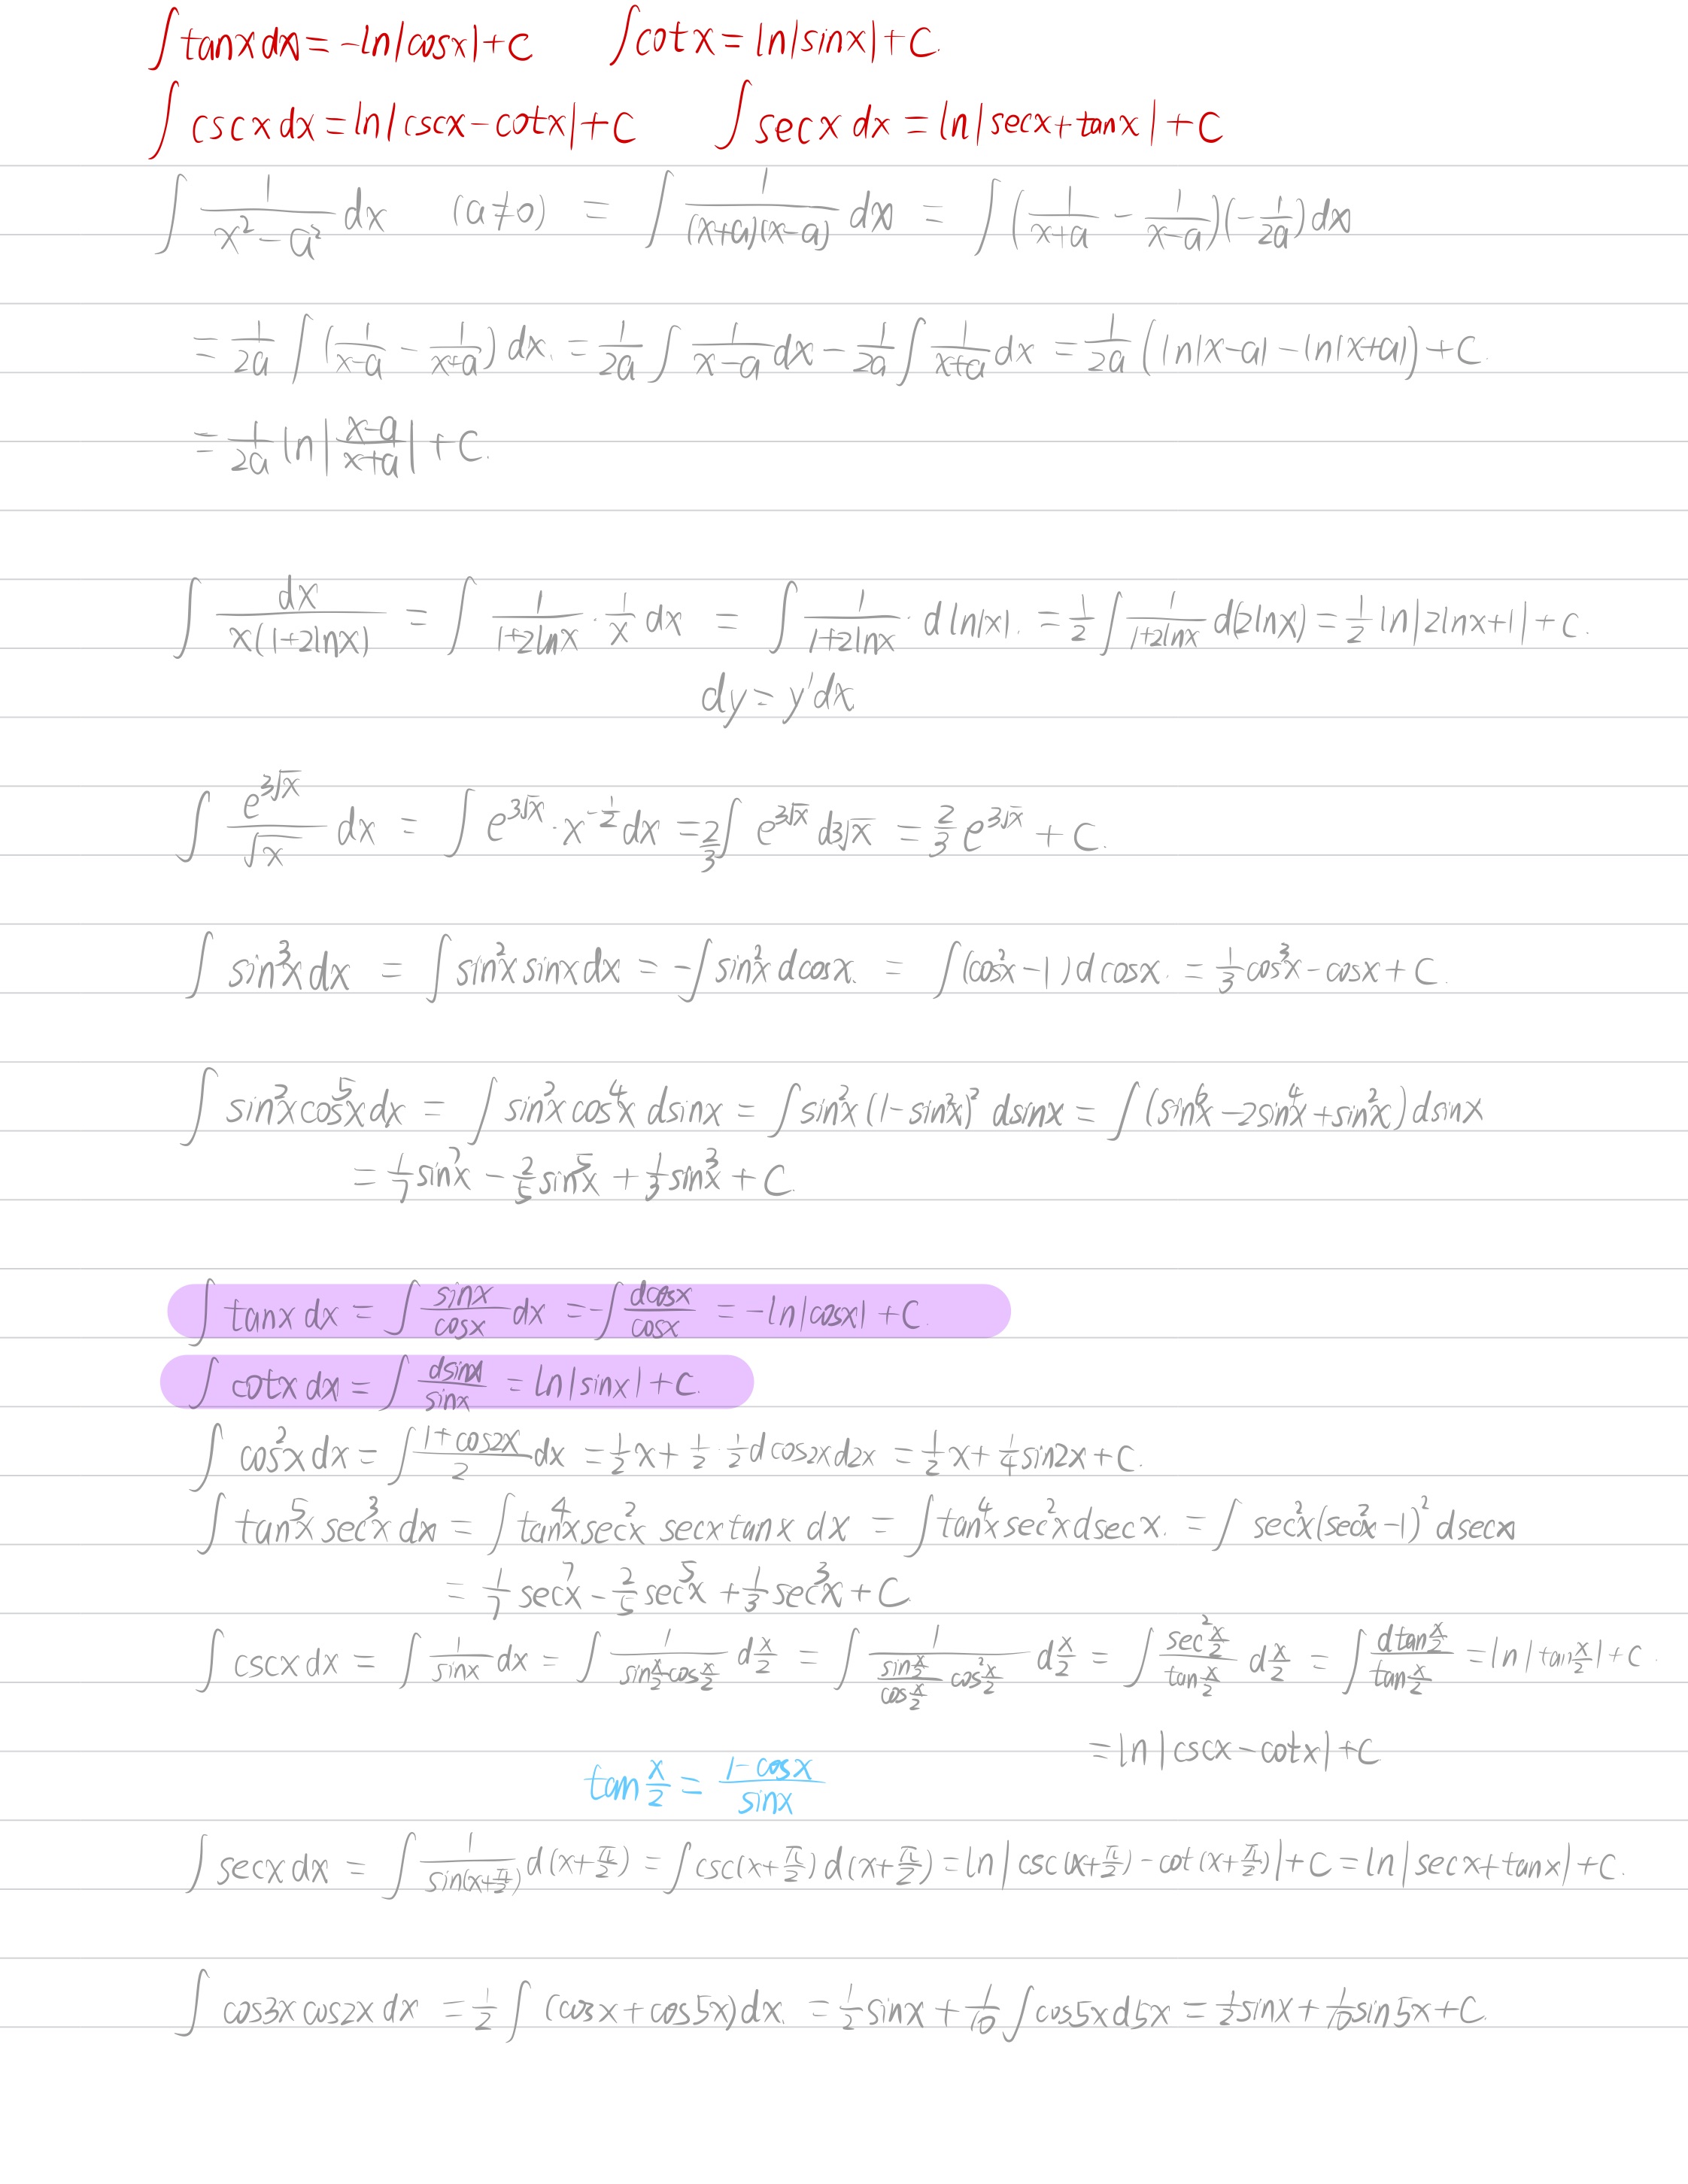 ∫tanxdx=-ln|cosx|+C ∫cotx=ln|sinx|+C.
∫cscxdx=ln|cscx-cotx|+C ∫secxdx=ln|secx+tanx|+C
∫1/(x²-a²)dx (a≠0) = ∫1/((x+a)(x-a))dx = ∫(1/(x+a)-1/(x-a))(-1/2a)dx
=1/2a∫(1/(x-a)-1/(x+a))dx.=1/2a∫1/(x-a)dx-1/2a∫1/(x+a)dx=1/2a(ln|x-a|-ln|x+a|)+C.
=1/2a ln|(x-a)/(x+a)|+C.
∫dx/(x(1+2lnx))=∫1/(1+2lnx)·1/x dx=∫1/(1+2lnx)·dln|x|.=1/2∫1/(1+2lnx)d(2lnx)=1/2ln|2lnx+1|+C.
dy=y'dx
∫e^(3√x)/√x dx=∫e^(3√x)·x^(-1/2)dx=2/3∫e^(3√x)d3√x=2/3e^(3√x)+C.
∫sin³xdx=∫sin²xsinxdx=-∫sin²xdcosx.=∫(cos²x-1)dcosx.=1/3cos³x-cosx+C.
∫sin²xcos⁵xdx=∫sin²xcos⁴xdsinx=∫sin²x(1-sin²x)²dsinx=∫(sin⁶x-2sin⁴x+sin²x)dsinx
=1/7sin⁷x-2/5sin⁵x+1/3sin³x+C.
∫tanxdx=∫sinx/cosx dx=-∫dcosx/cosx=-ln|cosx|+C.
∫cotxdx=∫dsinx/sinx=ln|sinx|+C.
∫cos²xdx=∫(1+cos2x)/2 dx=1/2x+1/2·1/2dcos2xd2x=1/2x+1/4sin2x+C.
∫tan⁵xsec³xdx=∫tan⁴xsec²x secxtanx dx=∫tan⁴xsec²xdsecx.=∫sec²x(sec²x-1)²dsecx
=1/7sec⁷x-2/5sec⁵x+1/3sec³x+C
∫cscxdx=∫1/sinx dx=∫1/(sin x/2 cos x/2) d x/2=∫1/((sin x/2)/(cos x/2) cos² x/2) d x/2=∫(sec² x/2)/(tan x/2) d x/2=∫(dtan x/2)/(tan x/2)=ln|tan x/2|+C.
=ln|cscx-cotx|+C
tan x/2=(1-cosx)/sinx
∫secxdx=∫1/sin(x+π/2) d(x+π/2)=∫csc(x+π/2)d(x+π/2)=ln|csc(x+π/2)-cot(x+π/2)|+C=ln|secx+tanx|+C.
∫cos3xcos2xdx=1/2∫(cosx+cos5x)dx.=1/2sinx+1/10∫cos5xd5x=1/2sinx+1/10sin5x+C.